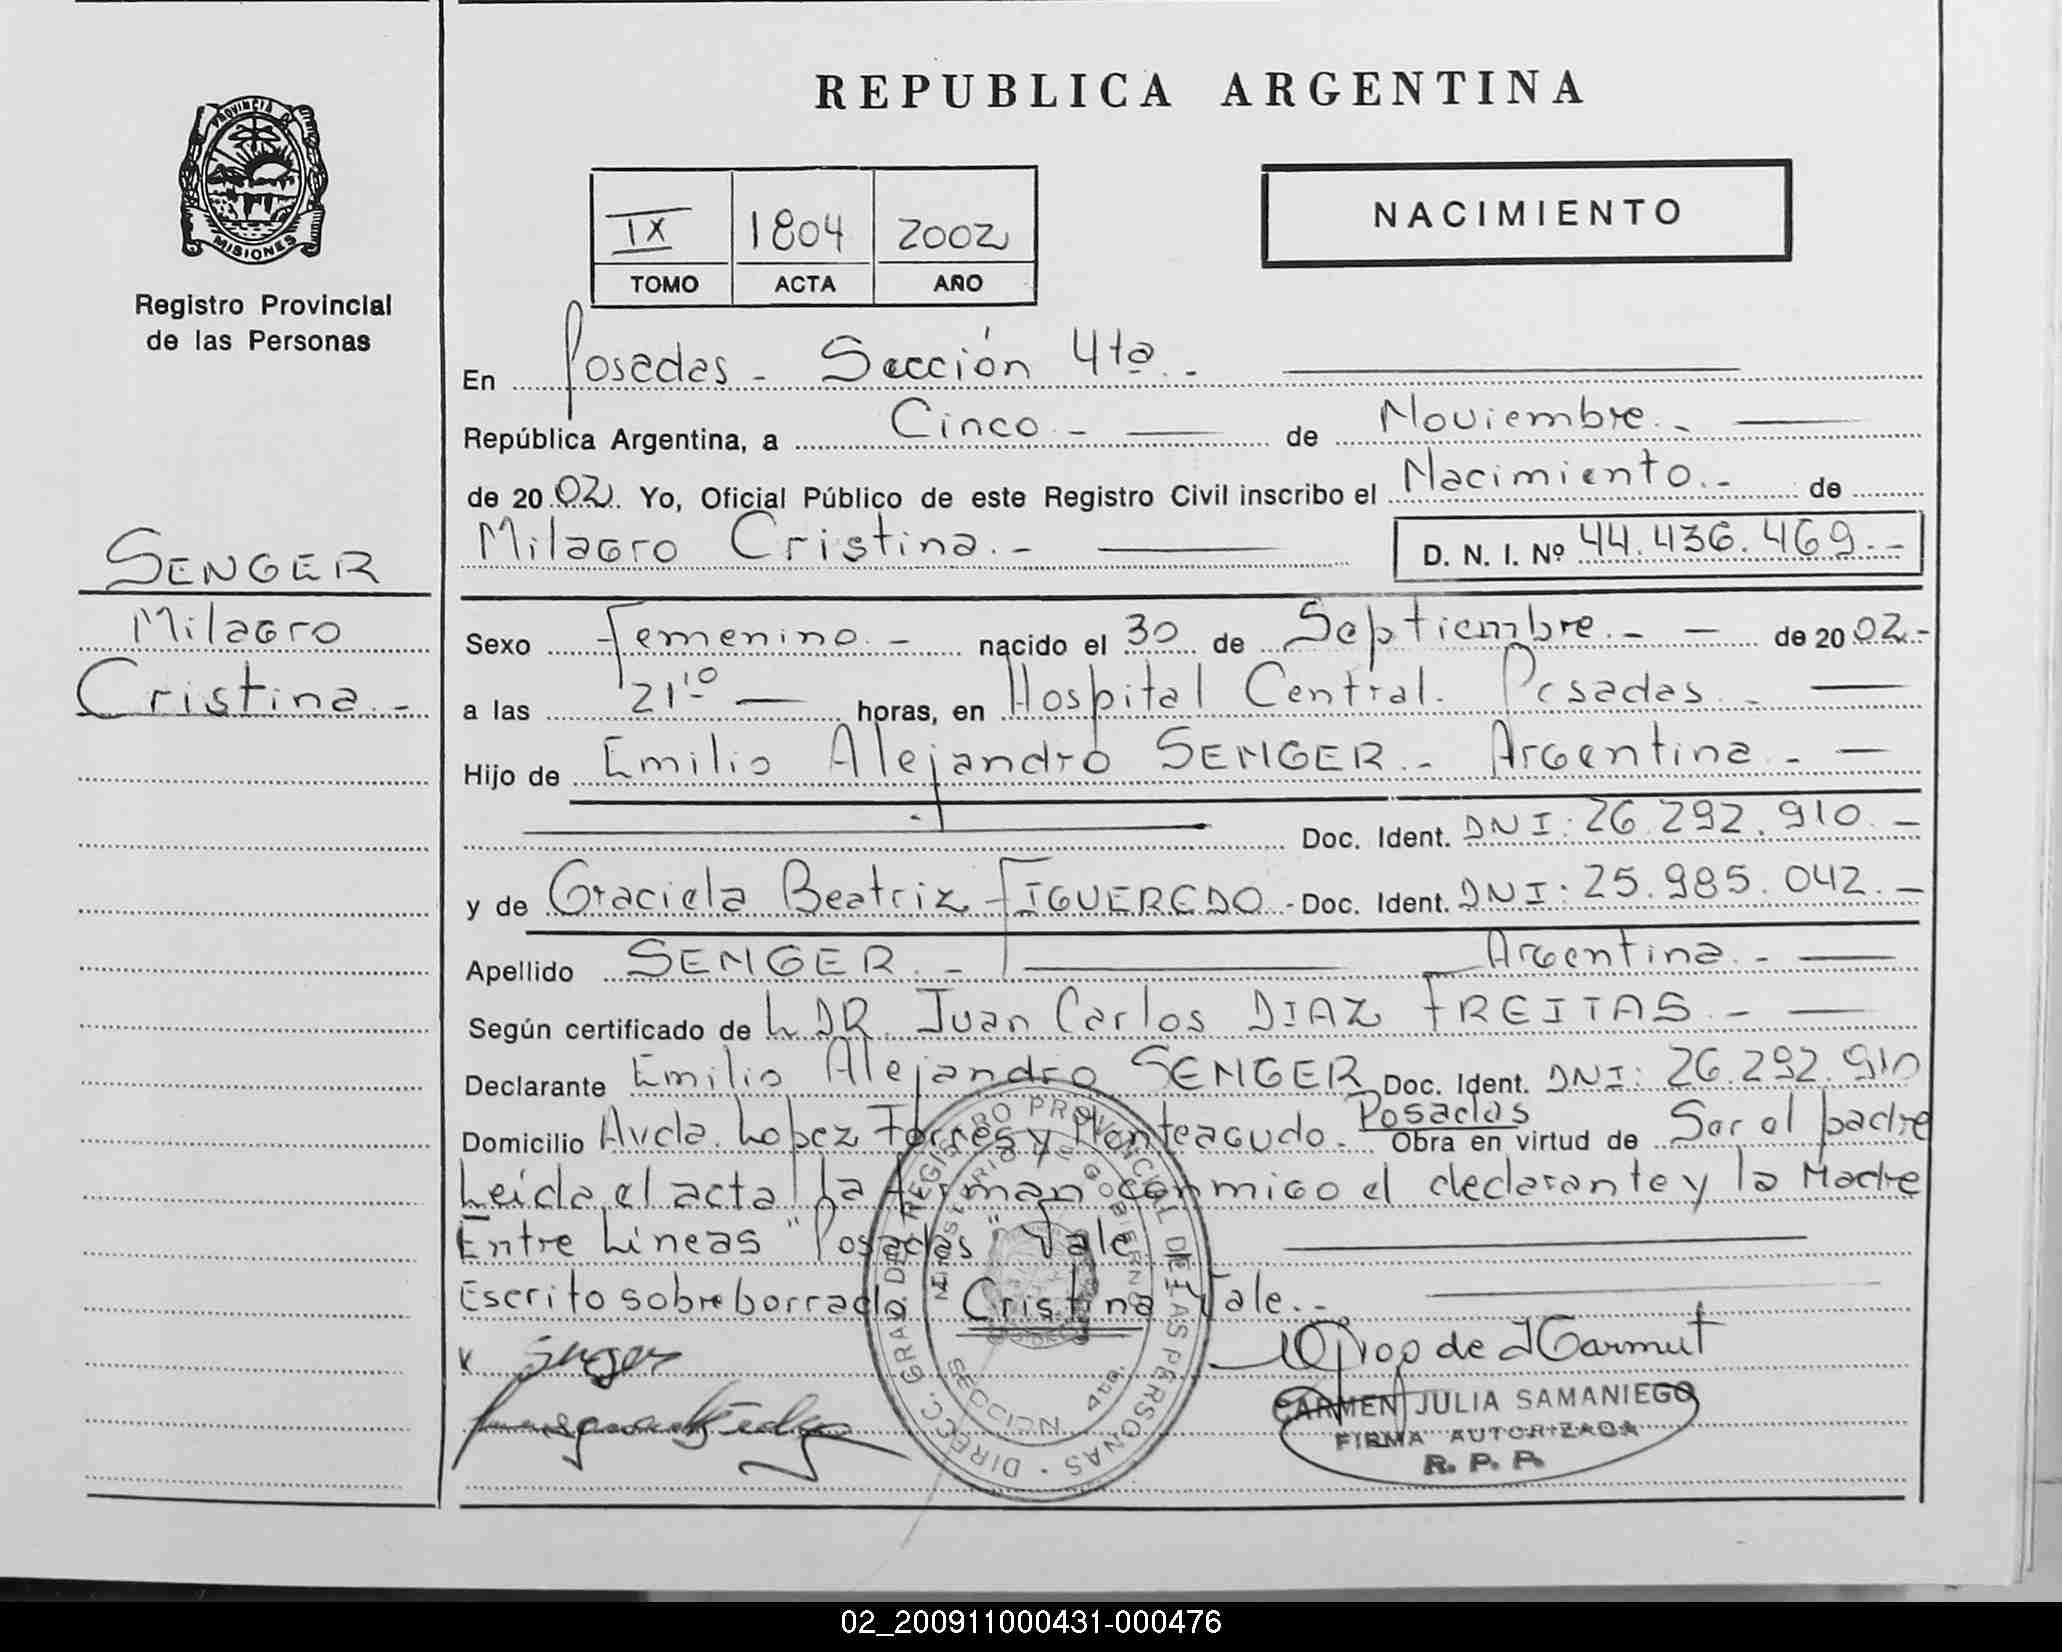 REPUBLICA ARGENTINA
PROVINCIA DE
MISIONES
Registro Provincial
de las Personas
IX 1804 2002
TOMO ACTA AÑO
NACIMIENTO
En Posadas - Sección 4ta. -
República Argentina, a Cinco - de Noviembre. -
de 20 02. Yo, Oficial Público de este Registro Civil inscribo el Nacimiento. - de
SENGER
Milagro
Cristina. -
Milagro Cristina. - D. N. I. Nº 44.436.469. -
Sexo Femenino. - nacido el 30 de Septiembre. - de 20 02. -
a las 21'10 horas, en Hospital Central. Posadas. -
Hijo de Emilio Alejandro SENGER. - Argentina. -
Doc. Ident. DNI: 26.292.910. -
y de Graciela Beatriz FIGUEREDO. - Doc. Ident. DNI: 25.985.042. -
Apellido SENGER. - Argentina. -
Según certificado de L DR. Juan Carlos DIAZ FREITAS. -
Declarante Emilio Alejandro SENGER Doc. Ident. DNI: 26.292.910
Domicilio Avda. Lopez Torres y Monteagudo. Posadas Obra en virtud de Ser el padre
Leida el acta la firman conmigo el declarante y la Madre
Entre Lineas "Posadas" Vale
Escrito sobre borrado. Cristina Vale. -
DIRECC. GRAL. DEL REGISTRO PROVINCIAL DE LAS PERSONAS
MINISTERIO DE GOBIERNO
SECCION 4ta.
Senger
de Karmut
CARMEN JULIA SAMANIEGO
FIRMA AUTORIZADA
R. P. P.
02_200911000431-000476